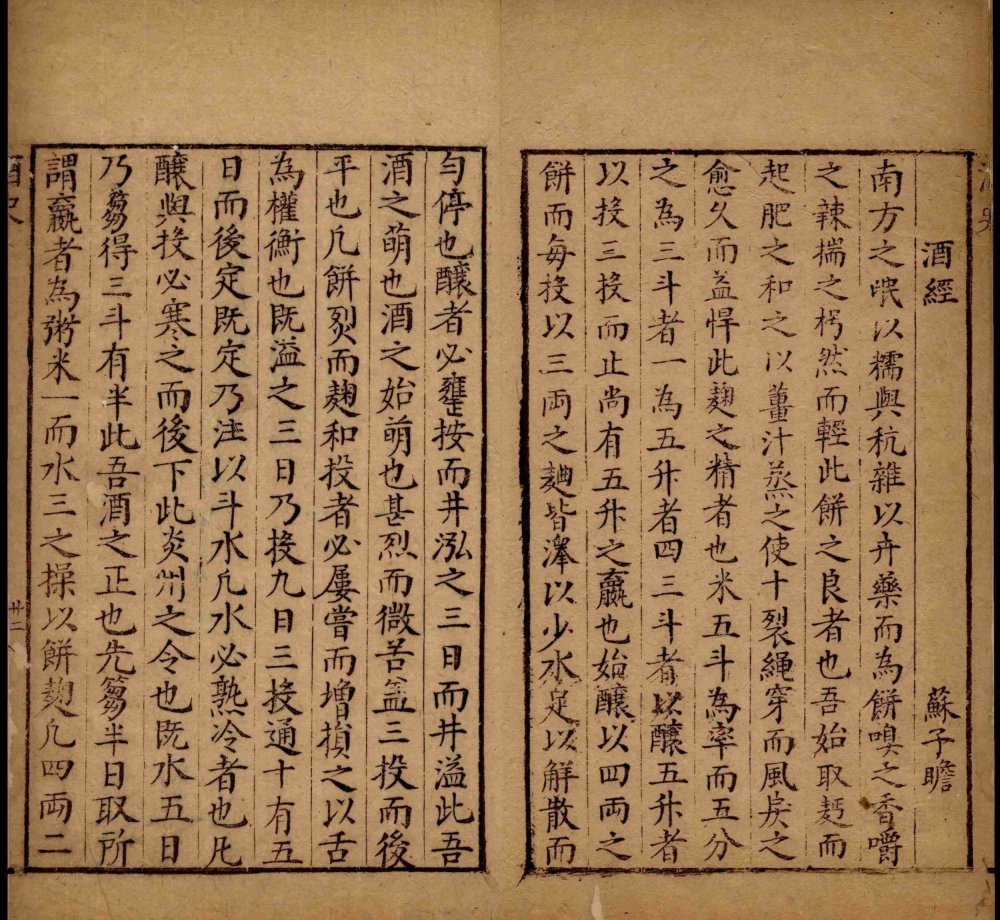 酒經
蘇子瞻
南方之氓以糯與秔雜以卉藥而為餅嗅之香嚼
之辣揣之枵然而輕此餅之良者也吾始取麪而
起肥之和之以薑汁蒸之使十裂繩穿而風戾之
愈久而益悍此麹之精者也米五斗為率而五分
之為三斗者一為五升者四三斗者以釀五升者
以投三投而止尚有五升之贏也始釀以四兩之
餅而每投以三兩之麯皆澤以少水足以解散而
勻停也釀者必甕按而井泓之三日而井溢此吾
酒之萌也酒之始萌也甚烈而微苦盖三投而後
平也凡餅烈而麹和投者必屢嘗而增損之以舌
為權衡也既溢之三日乃投九日三投通十有五
日而後定既定乃注以斗水凡水必熟冷者也凡
釀與投必寒之而後下此炎州之令也既水五日
乃芻得三斗有半此吾酒之正也先芻半日取所
謂贏者為粥米一而水三之操以餅麹凡四兩二
廿二